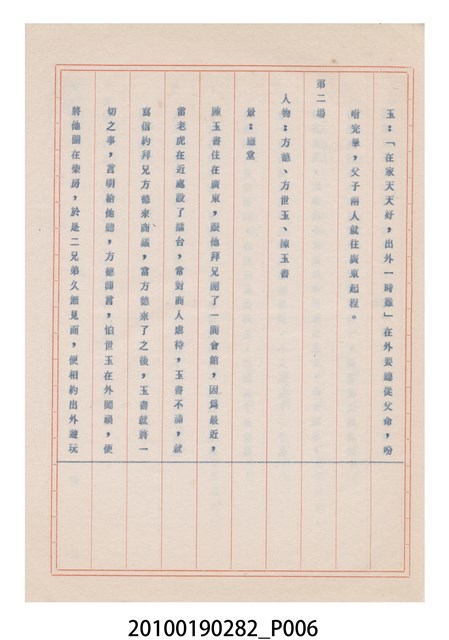 玉：「在家天天好，出外一時難」在外要聽從父命，吩
咐完畢，父子兩人就往廣東起程。
第二場
人物：方德、方世玉、陳玉書
景：廳堂
陳玉書住在廣東，跟他拜兄開了一間會館，因為最近，
雷老虎在近處設了擂台，常對商人虐待，玉書不滿，就
寫信約拜兄方德來商議，當方德來了之後，玉書就將一
切之事，言明給他聽，方德聞言，怕世玉在外闖禍，便
將他關在柴房，於是二兄弟久無見面，便相約出外遊玩
20100190282_P006